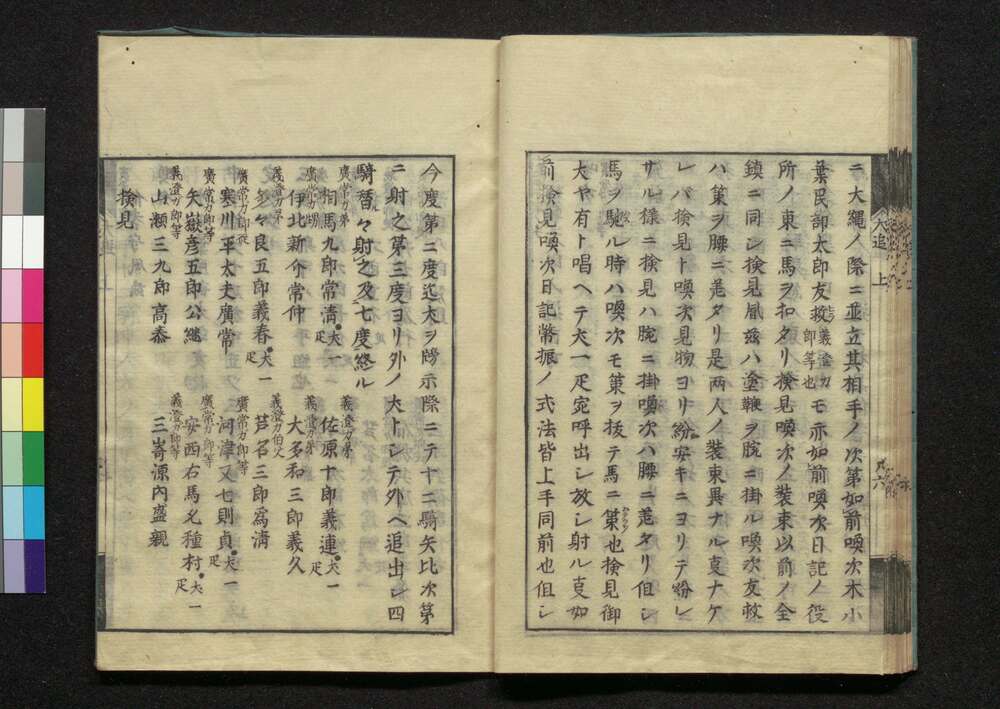 ニ大縄ノ際ニ並立其相手ノ次第如前喚次木小
葉民部太郎友救義澄カ郎等也モ亦如前喚次日記ノ役
所ノ東ニ馬ヲ扣タリ検見喚次ノ装束以前ノ全
鎮ニ同シ検見風茲ハ塗鞭ヲ腕ニ掛ル喚次友救
ハ策ヲ腰ニ差タリ是両人ノ装束異ナル支ナケ
レバ検見ト喚次見物ヨリ紛安キニヨリテ紛レ
サル様ニ検見ハ腕ニ掛喚次ハ腰ニ差タリ但シ
馬ヲ馳ル時ハ喚次モ策ヲ抜テ馬ニ策也検見御
犬ヤ有ト唱ヘテ犬一疋宛呼出シ放シ射ル支如
前検見喚次日記幣振ノ式法皆上手同前也但シ
犬追 上
六
今度第二度迄犬ヲ牓示際ニテ十二騎矢比次第
ニ射之第三度ヨリ外ノ犬トシテ外ヘ追出シ四
騎替々々射之及七度終ル
廣常カ弟
相馬九郎常清 犬一疋
義澄カ弟
佐原十郎義連 犬一疋
廣常カ甥
伊北新介常仲
義澄カ弟
大多和三郎義久
義澄カ弟
多々良五郎義春 犬一疋
義澄カ伯父
芦名三郎為清
廣常カ郎従
寒川平太夫廣常
廣常カ郎等
河津又七則貞 犬一疋
廣常カ郎等
矢嶽彦五郎公継
廣常カ郎等
安西右馬允種村 犬一疋
義澄カ郎等
山瀬三九郎高泰
義澄カ郎等
三嵜源内盛親
検見